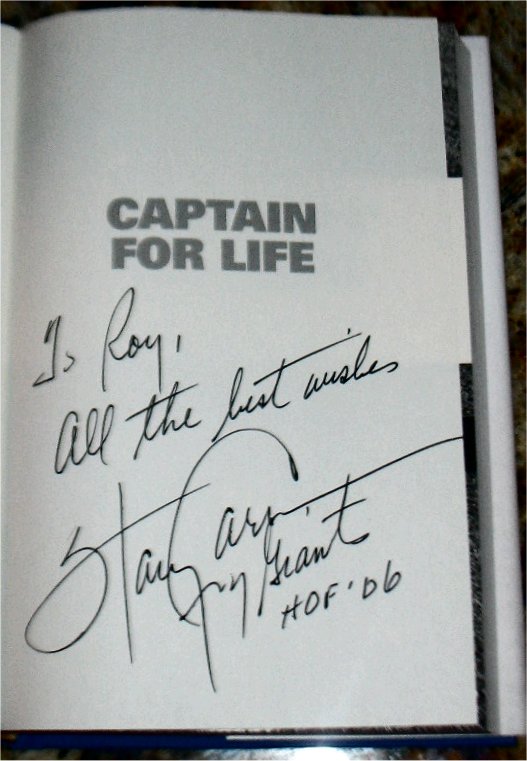 CAPTAIN
FOR LIFE
To Roy,
All the best wishes
Harry Carson
NY Giants
HOF '06